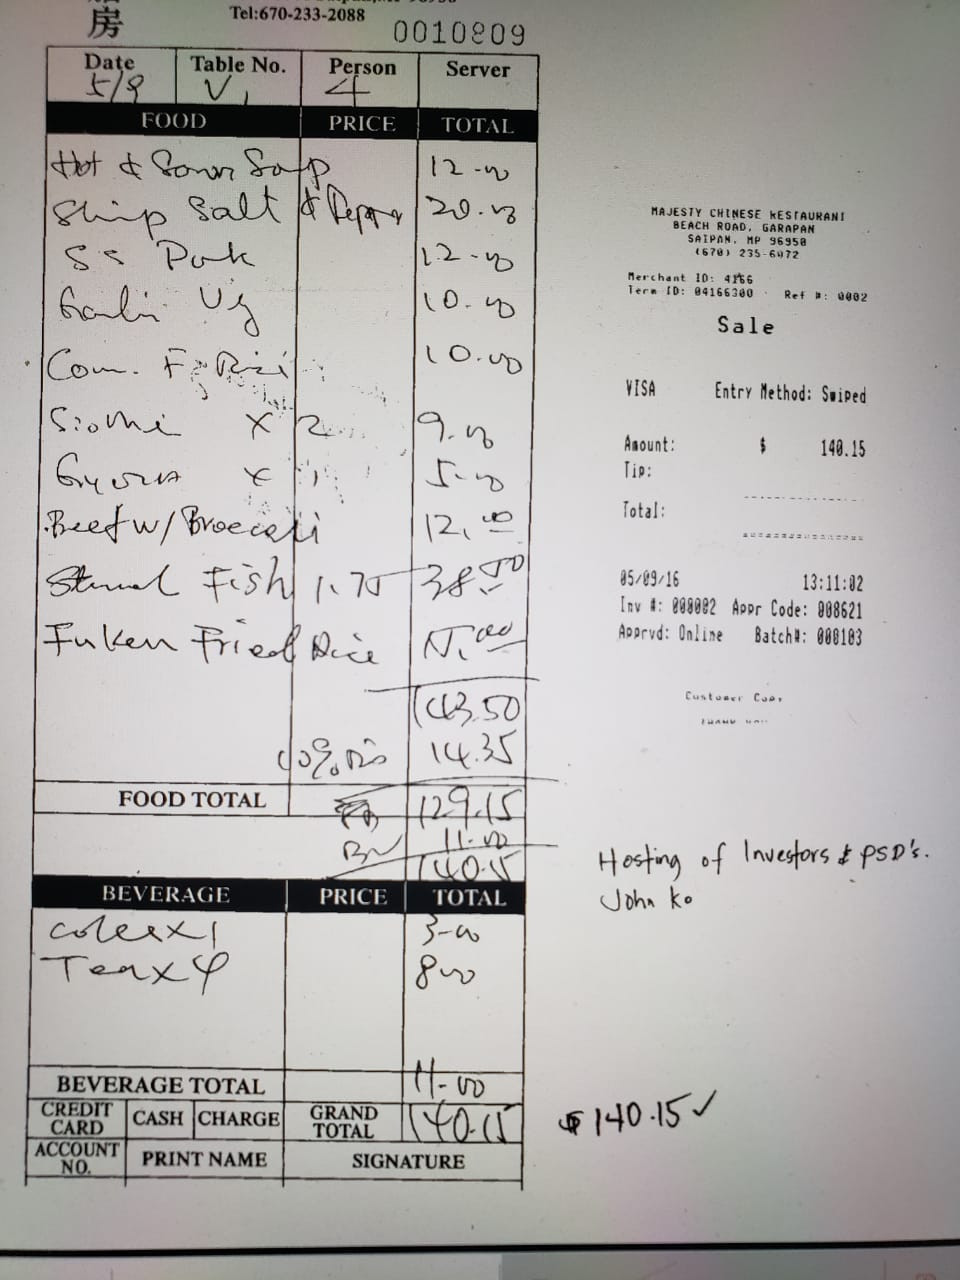 房
Tel:670-233-2088
0010809
Date Table No. Person Server
5/9 V1 4
FOOD PRICE TOTAL
Hot & Sour Soup 12.00
Salt & Pepper 20.00
SS Pork 12.00
10.00
Com. F. 10.00
Siomi x 2 9.00
Gyoza x 1 5.00
Beef w/ Broccoli 12.00
Fish 1.75 38.50
Fuken Fried Rice 15.00
143.50
10% Dis 14.35
FOOD TOTAL 129.15
11.00
140.15
BEVERAGE PRICE TOTAL
x1 3.00
Tea x 4 8.00
BEVERAGE TOTAL 11.00
CREDIT CARD CASH CHARGE GRAND TOTAL 140.15
ACCOUNT NO. PRINT NAME SIGNATURE
MAJESTY CHINESE RESTAURANT
BEACH ROAD, GARAPAN
SAIPAN, MP 96950
(670) 235-6972
Merchant ID: 4166
Term ID: 04166300 Ref #: 0002
Sale
VISA Entry Method: Swiped
Amount: $ 140.15
Tip:
Total:
05/09/16 13:11:02
Inv #: 000002 Appr Code: 008621
Apprvd: Online Batch#: 000103
Customer Copy
THANK YOU!
Hosting of Investors & PSD's.
John Ko
$140.15 ✓